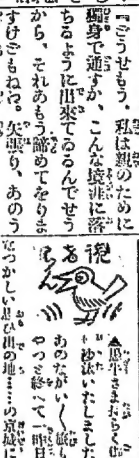 『どうせもう、私は親のために
獨身で通すか、こんな境涯に落
ちるように出來てゐるんでせう
から、それあもう諦めてをりま
すけどもねや。矢張り、あのう
後
あ
▲黒牛さましばらく御
ぶ沙汰いたしました
あのながい〳〵旅も
やつと終へて一昨日
なつかしい思ひ出の地……の京城に